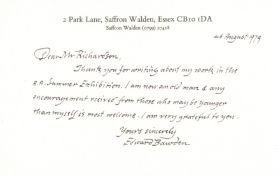 2 Park Lane, Saffron Walden, Essex CB10 1DA
Saffron Walden (0799) 27418
4th August 1979
Dear Mr Richardson,
Thank you for writing about my work in the
R.A. Summer Exhibition. I am now an old man & any
encouragement received from those who may be younger
than myself is most welcome. I am very grateful to you.
Yours sincerely
Edward Bawden